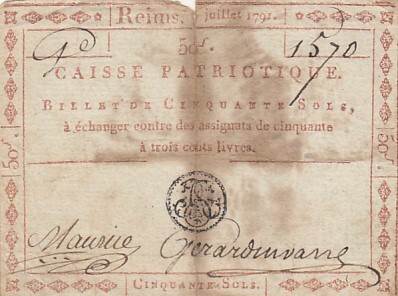 Reims, juillet 1791.
50s.
1570
CAISSE PATRIOTIQUE.
BILLET DE CINQUANTE SOLS,
à échanger contre des assignats de cinquante
à trois cents livres.
50s.
50s.
Maurice Gerardinvarre
CINQUANTE SOLS.